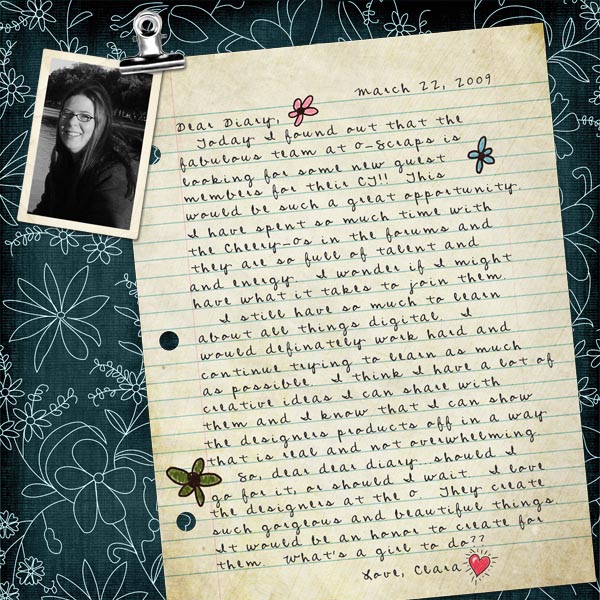 March 22, 2009
Dear Diary,
Today I found out that the
fabulous team at o-Scraps is
looking for some new guest
members for their CT!! This
would be such a great opportunity.
I have spent so much time with
the Cheery-os in the forums and
they are so full of talent and
and energy. I wonder if I might
have what it takes to join them.
I still have so much to learn
about all things digital. I
would definately work hard and
continue trying to learn as much
as possible. I think I have a lot of
creative ideas I can share with
them and I know that I can show
the designers products off in a way
that is real and not overwhelming.
So, dear dear diary...should I
go for it, or should I wait. I love
the designers at the o. They create
such gorgeous and beautiful things.
It would be an honor to create for
them. What's a girl to do??
Love, Clara